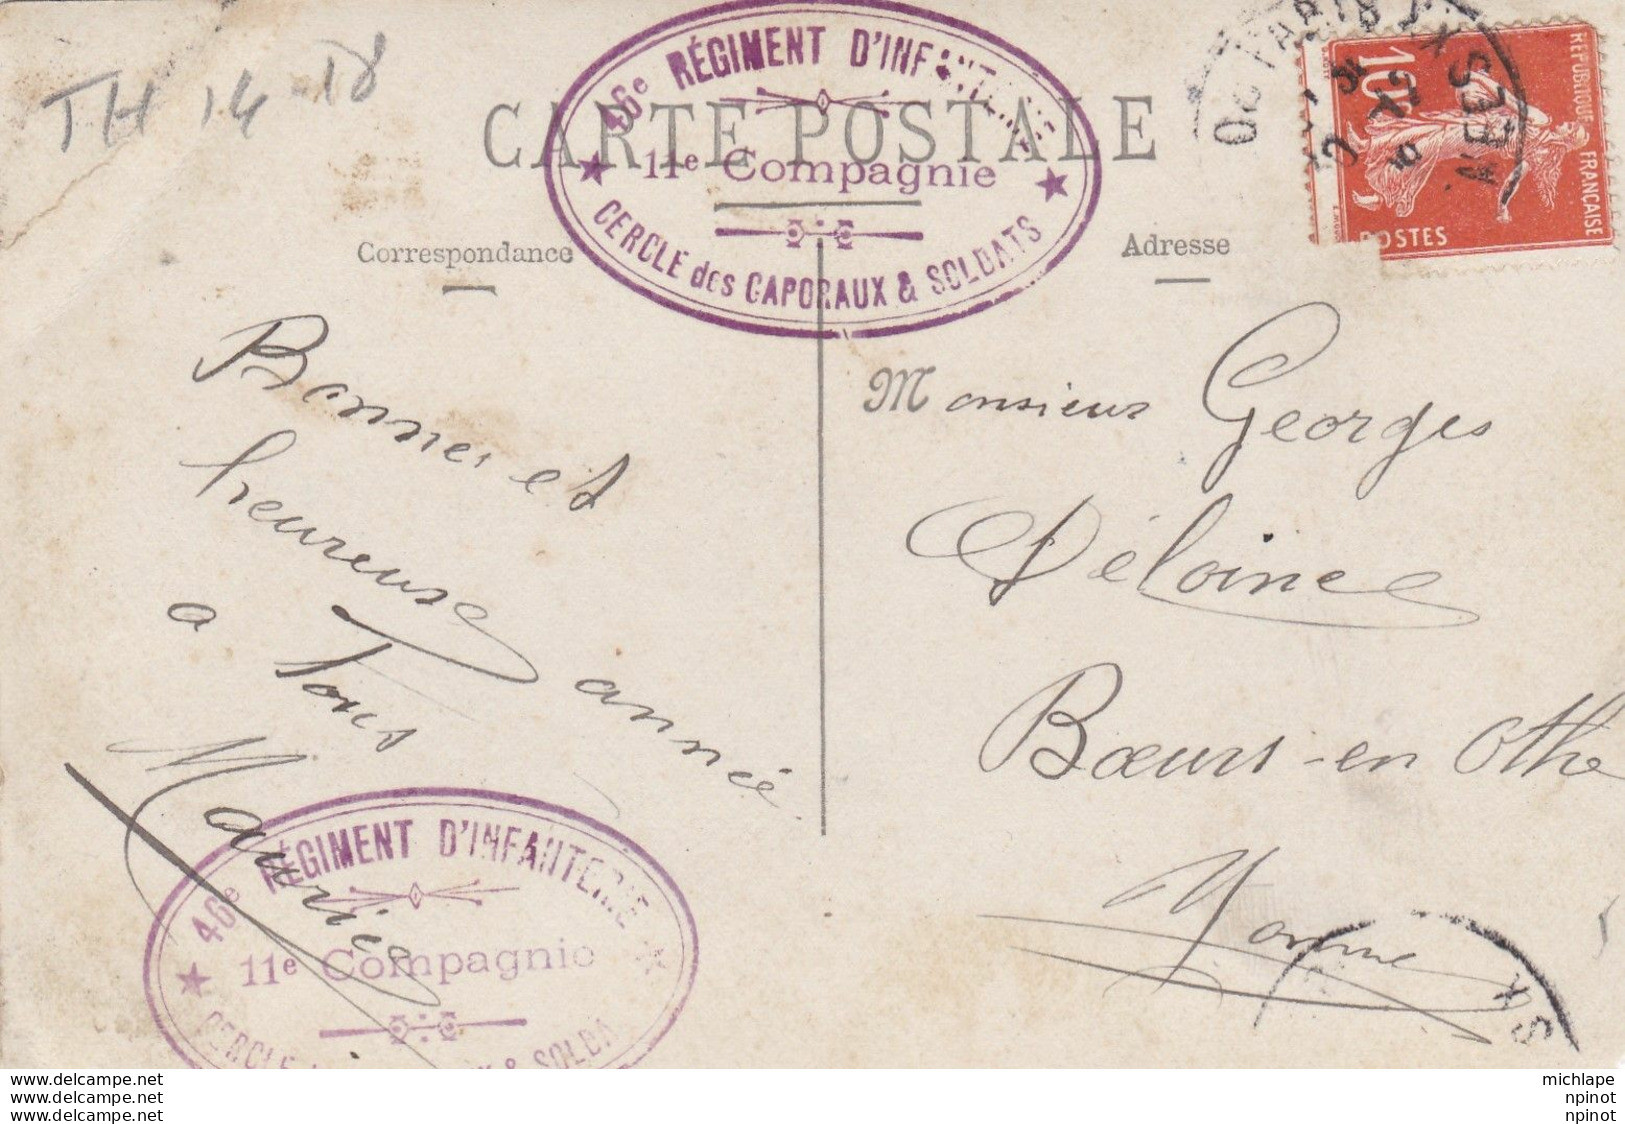 TH 14-18
CARTE POSTALE
46e RÉGIMENT D'INFANTERIE
11e Compagnie
CERCLE des CAPORAUX & SOLDATS
RÉPUBLIQUE FRANÇAISE
10c
POSTES
Correspondance
Adresse
Bonne et
heureuse année
a Tous
Maurice
46e RÉGIMENT D'INFANTERIE
11e Compagnie
CERCLE & SOLDA
Monsieur Georges
Déloince
Bœurs-en Othe
Yonne
www.delcampe.net
www.delcampe.net
www.delcampe.net
michlape
npinot
npinot